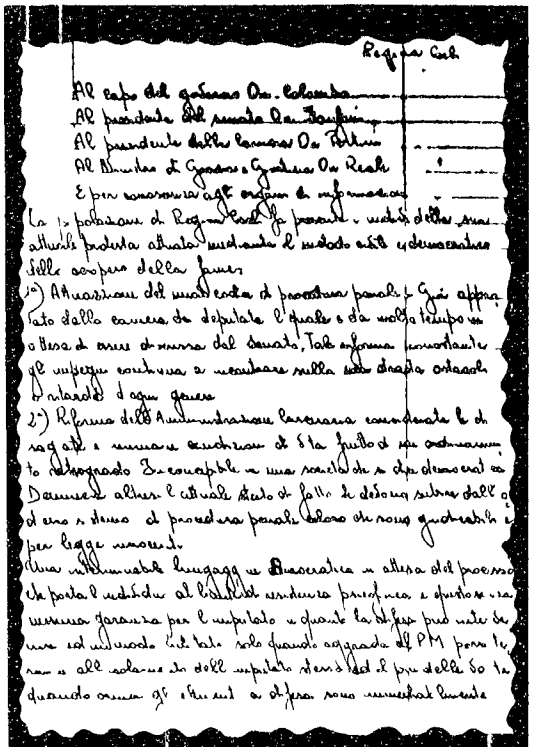 Regina Coeli
Al capo del governo On. Colombo
Al presidente del senato On Fanfani
Al presidente della camera On Pertini
Al Ministro di Grazia e Giustizia On Reale
E per conoscenza agli organi di informazione
La popolazione di Regina Coeli fa presente i motivi della sua
attuale protesta attuata mediante il metodo civile e democratico
dello sciopero della fame
1°) Attuazione del nuovo codice di procedura penale Già appro
vato dalla camera dei deputati il quale è da molto tempo in
attesa di essere discusso dal Senato, Tale riforma nonostante
gli impegni continua a incontrare sulla sua strada ostacoli
e ritardi d'ogni genere
2°) Riforma dell'Amministrazione Carceraria considerate le di
sagiate e umane condizioni di vita frutto di un ordinamen
to retrogrado Inconcepibile in una società che si dice democratica
Denuncia altresì l'attuale stato di fatto che debbono subire dall'o
dierno sistema di procedura penale coloro che sono giudicabili e
per legge innocenti.
Una interminabile lungaggine Burocratica in attesa del processo
che porta l'individuo al limite di resistenza psicofisica e
nessuna garanzia per l'imputato in quanto la difesa può
solo quando aggrada al PM
dell'imputato il più delle volte
quando ormai gli elementi a difesa sono